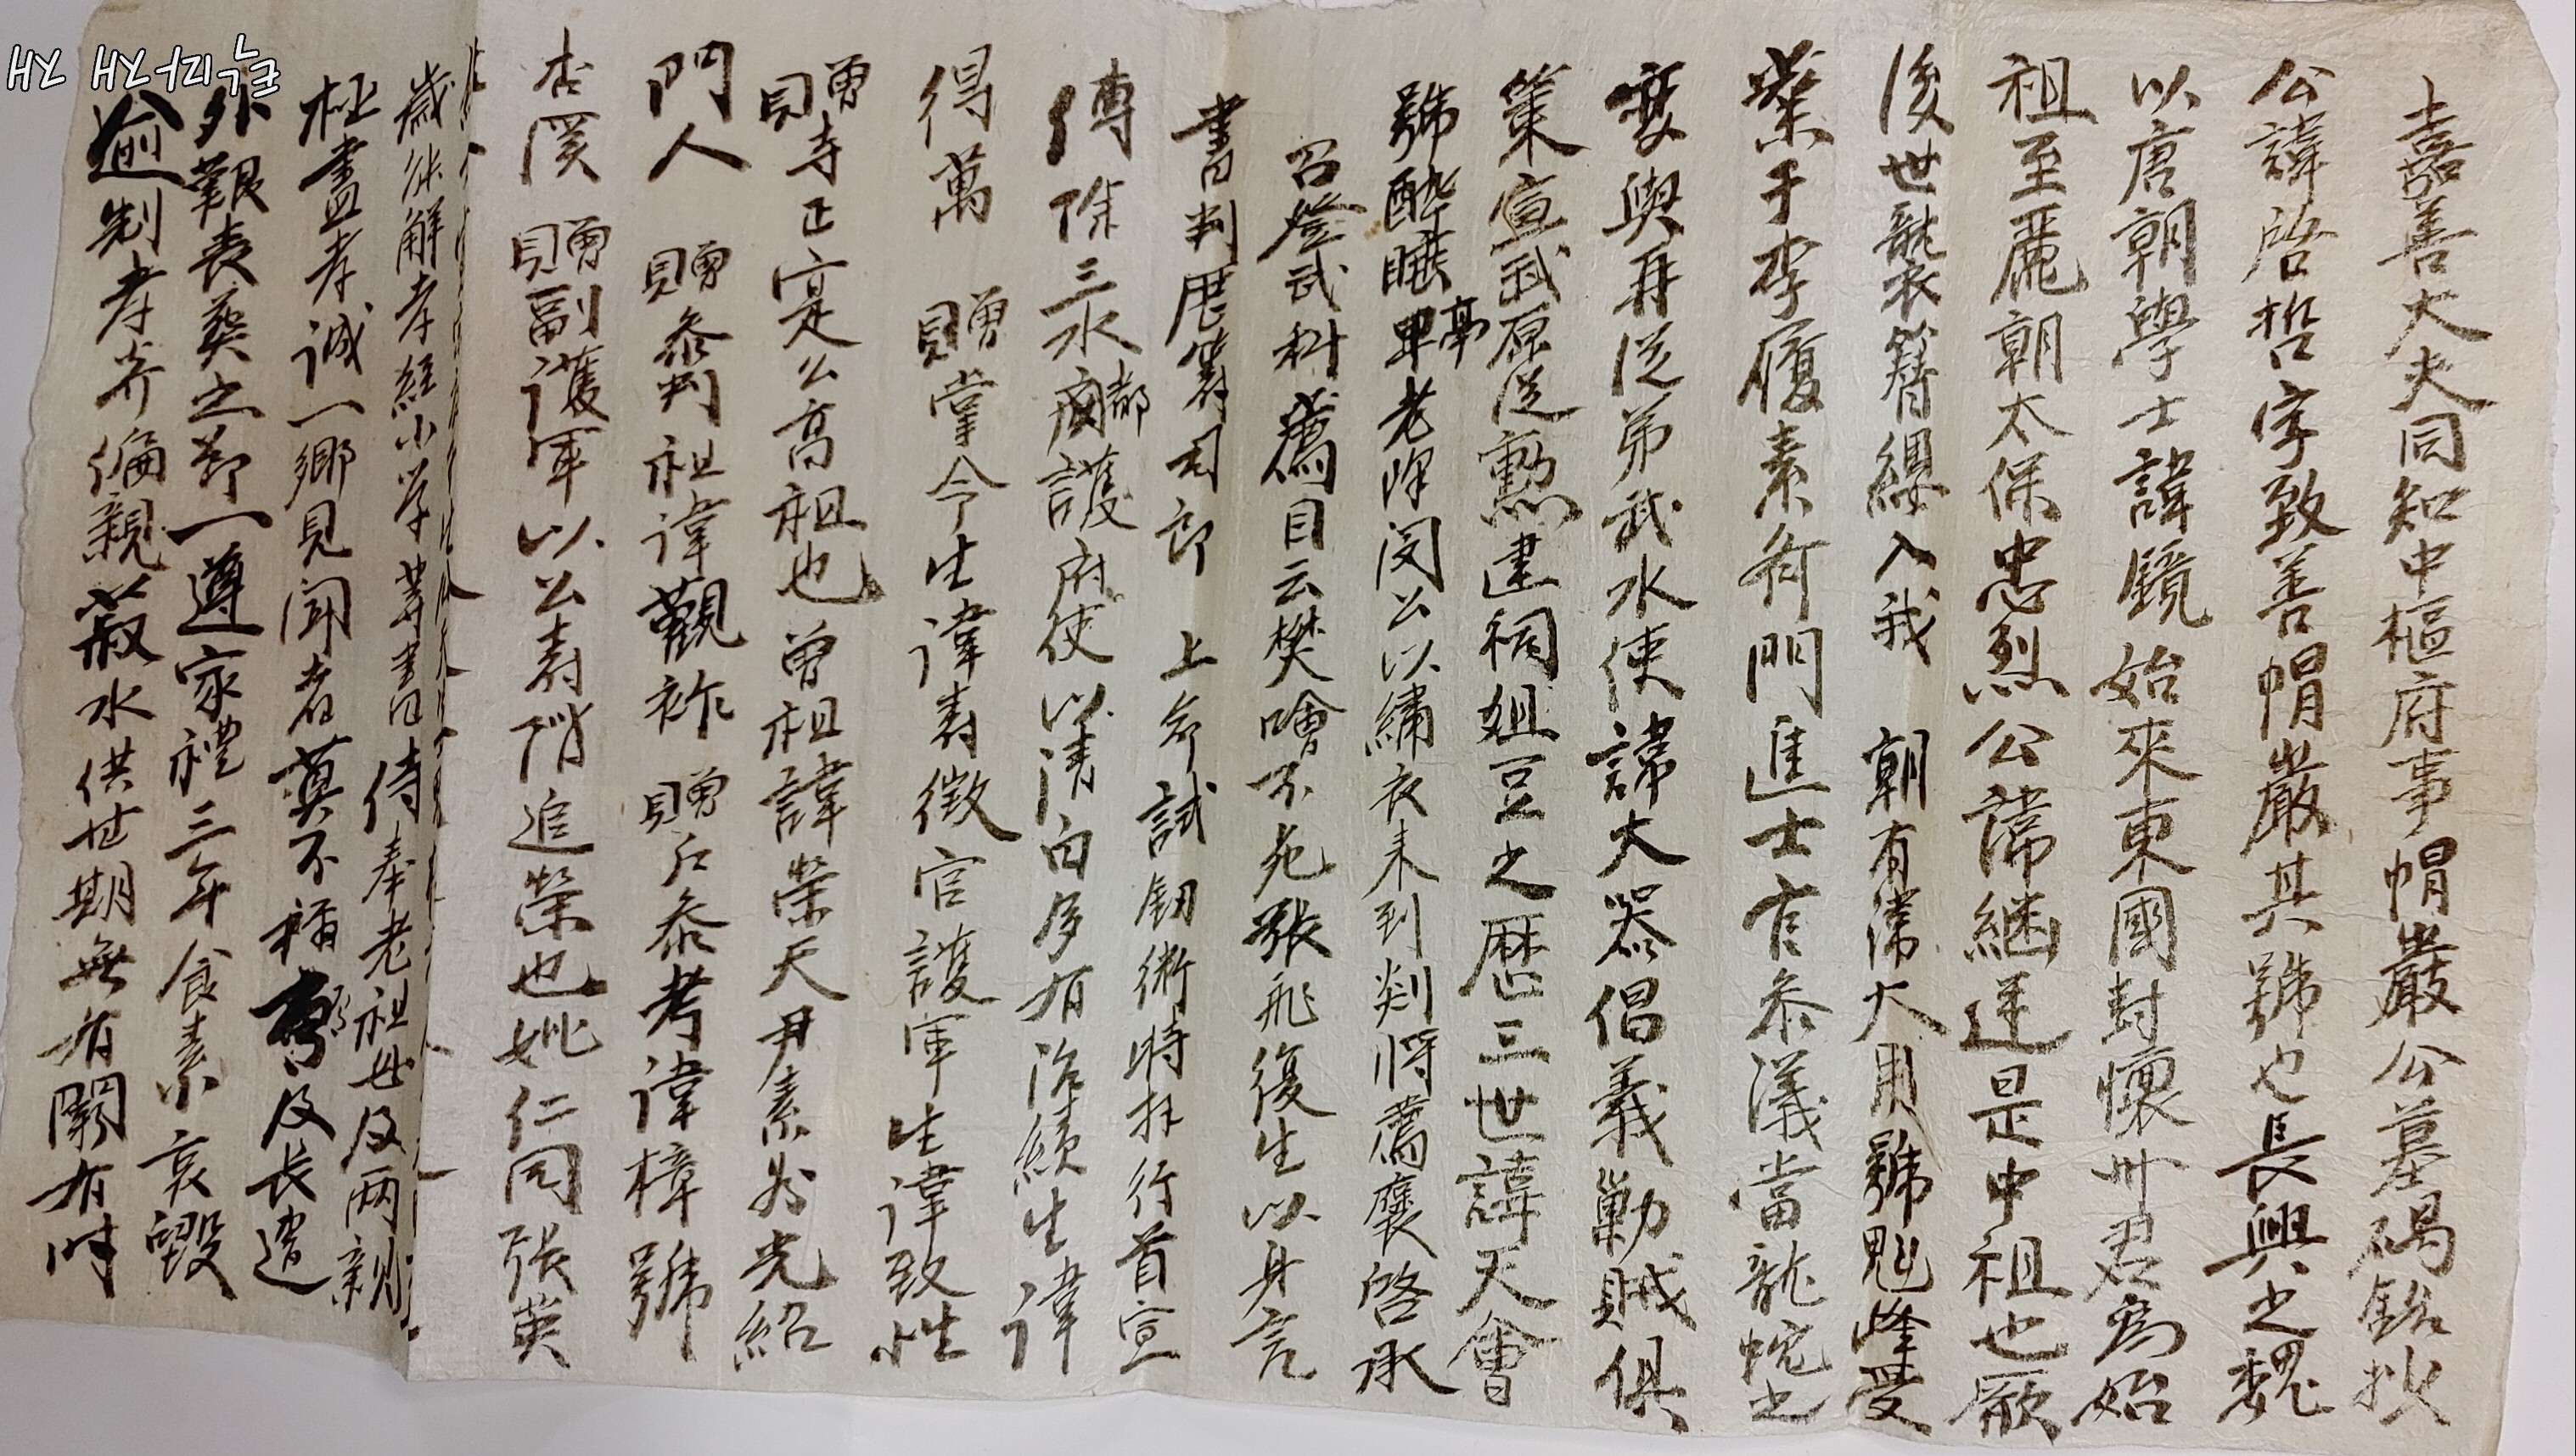 嘉善大夫同知中樞府事帽巖公墓碣銘抄
公諱啓哲字致善帽巖其號也長興之魏
以唐朝學士諱鏡始來東國封懷州君爲始
祖至麗朝太保忠烈公諱繼廷是中祖也厥
後世襲簪纓入我 朝有諱大用號魁峰受
業于李履素衡門進士官參議當龍蛇之
變與再從弟武水使諱大器倡義勦賊俱
策宣武原從勳建祠俎豆之歷三世諱天會
號醉睡亭老峰閔公以繡衣來到剡將薦褒啓承
召登武科薦目云樊噲不死張飛復生以身言
書判歷籌司郎 上命試釖術時拜行首宣
傳除三水都護府使以淸白多有治績生諱
得萬 贈掌令生諱壽徵官護軍生諱致性
贈寺正寔公高祖也曾祖諱榮天尹素谷光紹
門人 贈參判祖諱觀祚 贈戶參考諱樟號
杏溪 贈副護軍以公壽階追榮也妣仁同張英
歲能解孝經小學等書侍奉老祖母及兩親
極盡孝誠一鄕見聞者莫不稱及長遭
外艱喪葬之節一遵家禮三年食素哀毁
逾制孝養偏親菽水供世期無有闕有時
핸 핸가피득